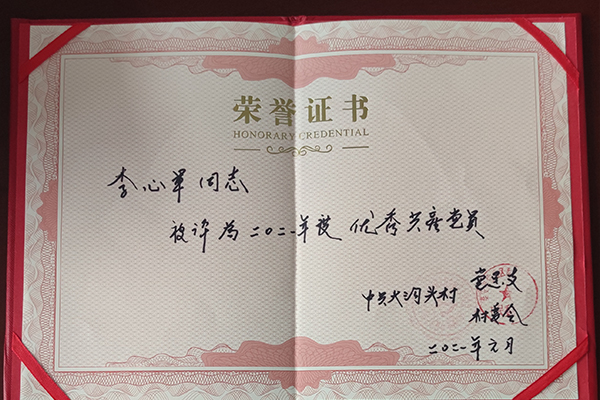 荣誉证书
HONORARY CREDENTIAL
李心军同志
被评为二〇二一年度 优秀共产党员
中共大沟头村 党总支
村委会
二〇二一年元月